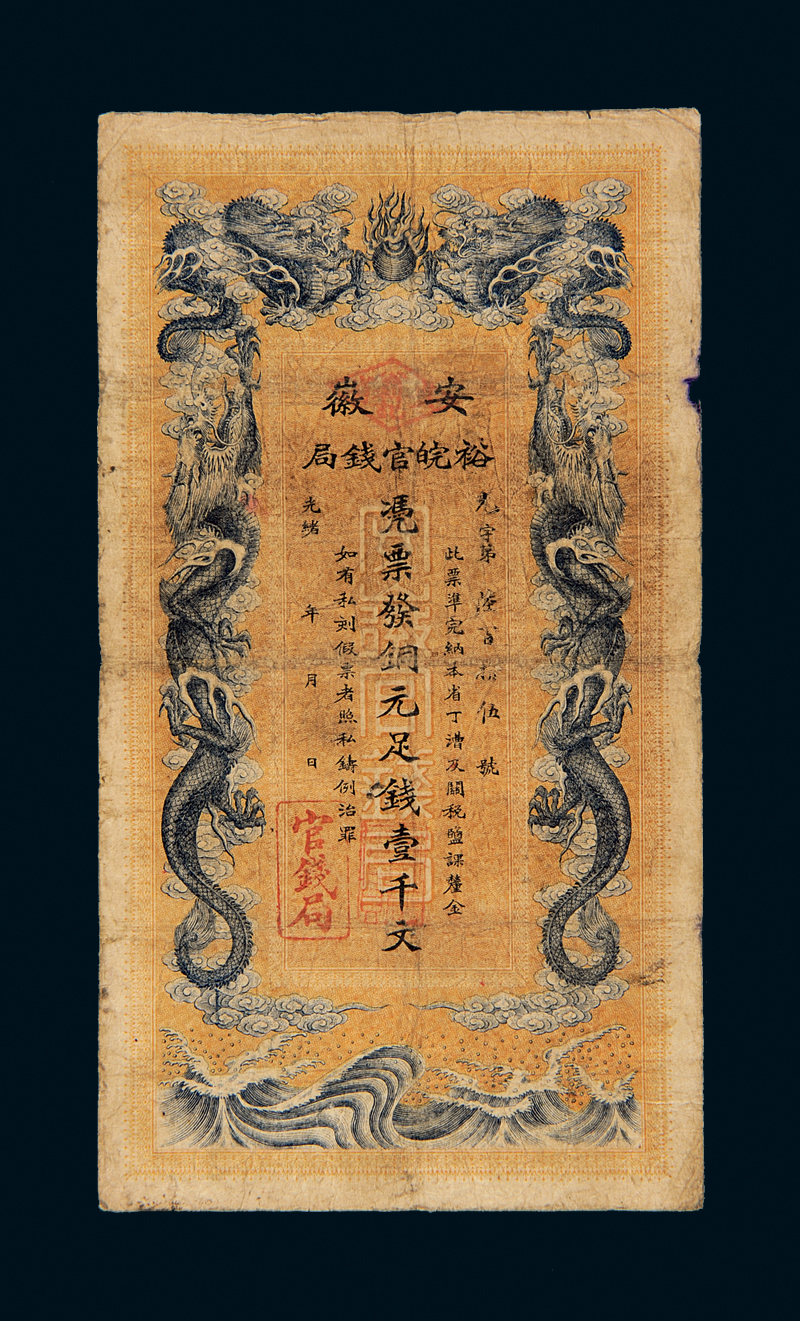 安徽
裕皖官錢局
字第 伍號
此票準完納本省丁漕及關稅鹽課釐金
憑票發銅元足錢壹千文
如有私刻假票者照私鑄例治罪
光緒 年 月 日
官錢局